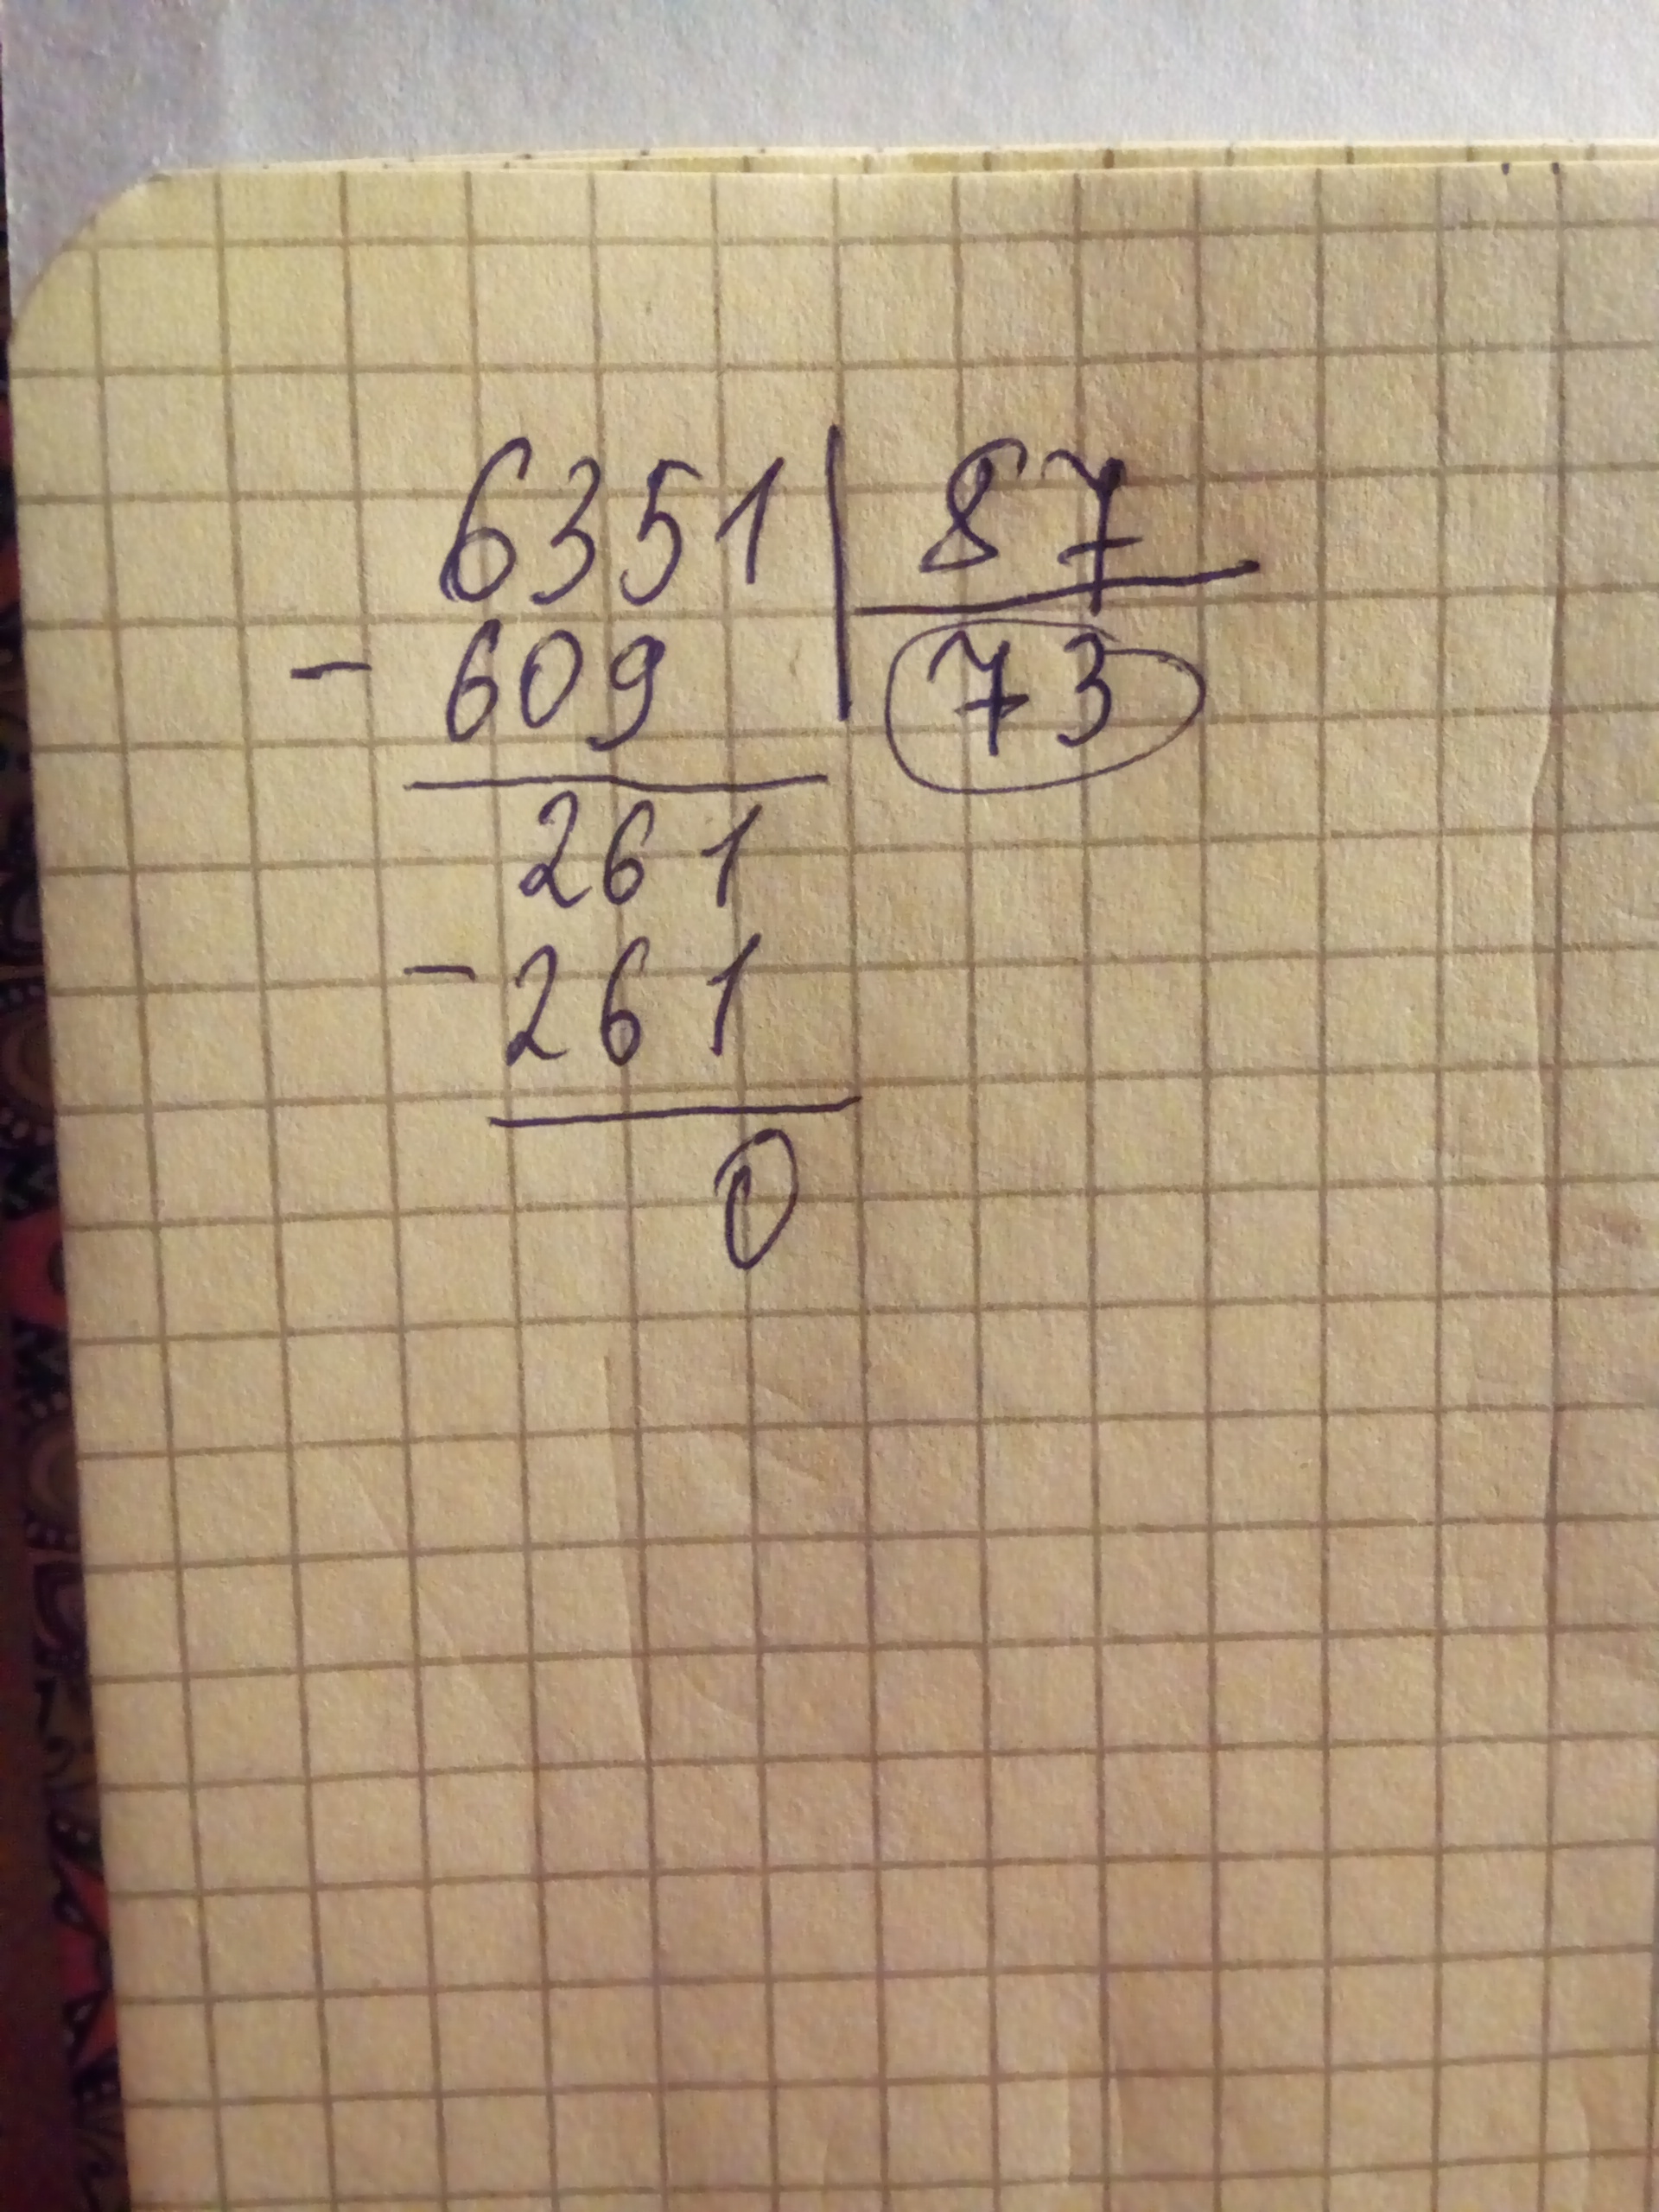 6351 | 87
- 609 73
261
- 261
0